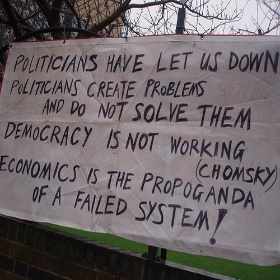 POLITICIANS HAVE LET US DOWN
POLITICIANS CREATE PROBLEMS
AND DO NOT SOLVE THEM
DEMOCRACY IS NOT WORKING
(CHOMSKY)
ECONOMICS IS THE PROPOGANDA
OF A FAILED SYSTEM!